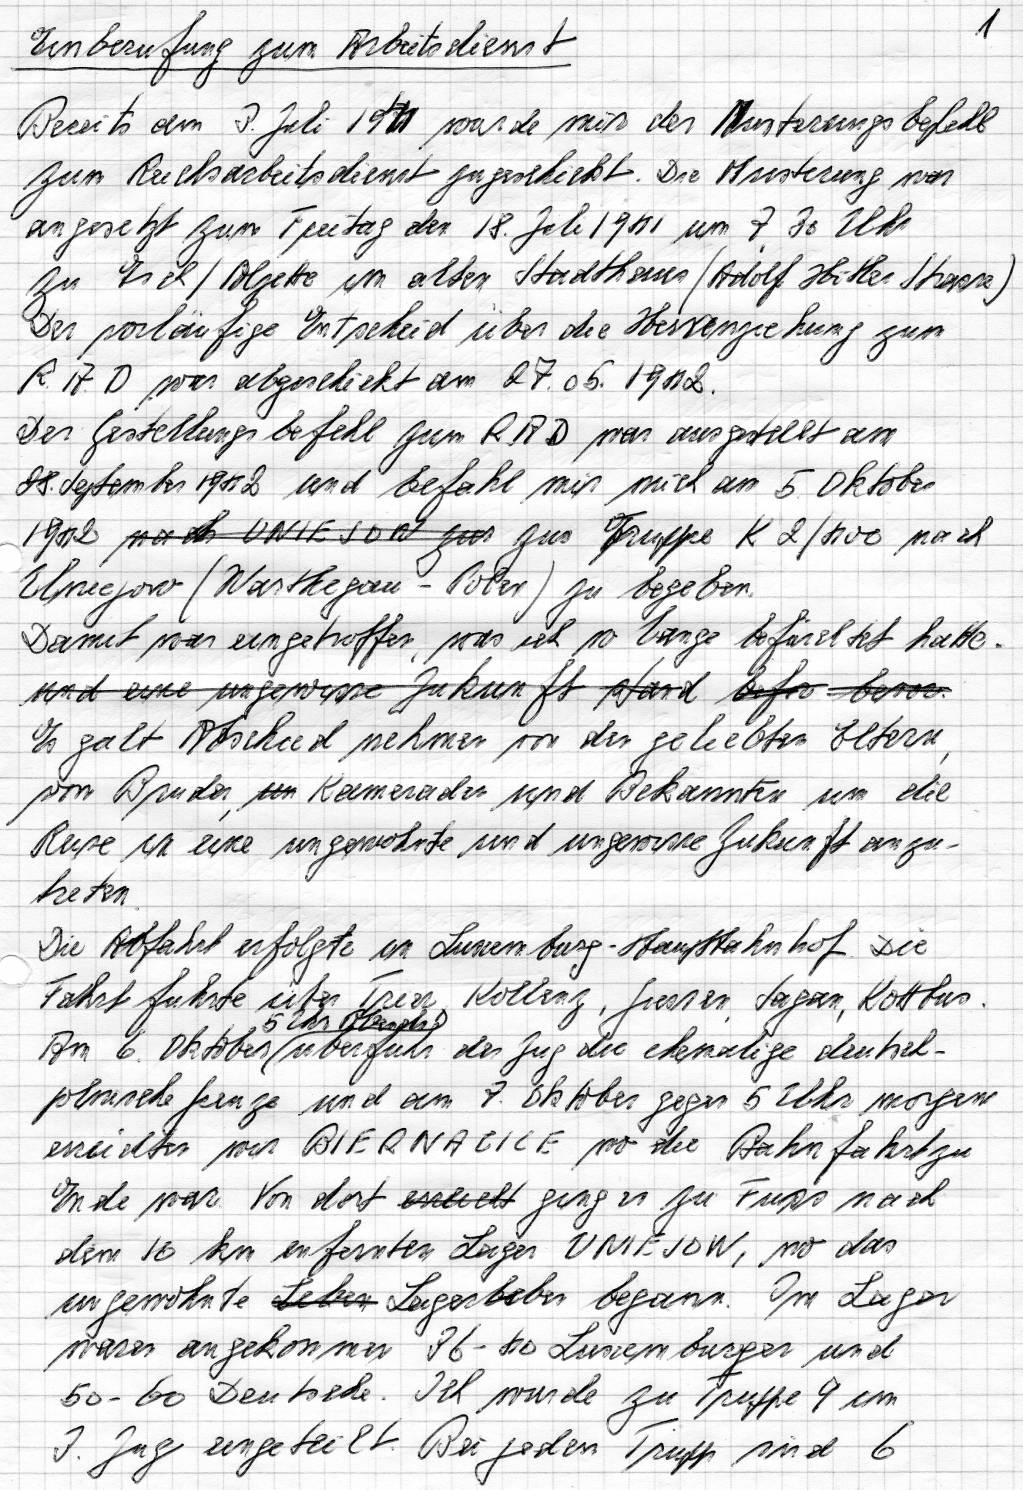 1
Einberufung zum Arbeitsdienst
Bereits am 3. Juli 1941 wurde mir der Musterungsbefehl
zum Reichsarbeitsdienst zugeschickt. Die Musterung war
angesetzt zum Freitag den 18. Juli 1941 um 7 30 Uhr
zu Esch/Alzette im alten Stadthaus (Adolf Hitler Strasse)
Der vorläufige Entscheid über die Heranziehung zum
R. A. D war abgeschickt am 27. 05. 1942.
Der Gestellungsbefehl zum RAD war ausgestellt am
28. September 1942 und befahl mir mich am 5 Oktober
1942 nach UNIEJOW zur zur Truppe K 2/400 nach
(Warthegau - Polen) zu begeben.
Damit war eingetroffen, was ich so lange befürchtet hatte.
und eine ungewisse Zukunft stand bevor.
Es galt Abschied nehmen von den geliebten Eltern,
vom Bruder, un Kameraden und Bekannten um die
Reise in eine ungewohnte und ungewisse Zukunft anzu-
treten.
Die Abfahrt erfolgte in Luxemburg-Hauptbahnhof. Die
Fahrt führte über Trier, Koblenz, Giessen, Sagan, Kottbus.
5 Uhr Abends
Am 6. Oktober überfuhr der Zug die ehemalige deutsch-
polnische Grenze und am 7. Oktober gegen 5 Uhr morgens
erreichten wir BIERNACICE wo die Bahnfahrt zu
Ende war. Von dort ging es zu Fuss nach
dem 10 km enfernten Lager UNIEJOW, wo das
ungewohnte Leben Lagerleben begann. Im Lager
waren angekommen 36-40 Luxemburger und
50-60 Deutsche. Ich wurde zu Truppe 9 im
3. Zug eingeteilt. Bei jeden Trupp sind 6